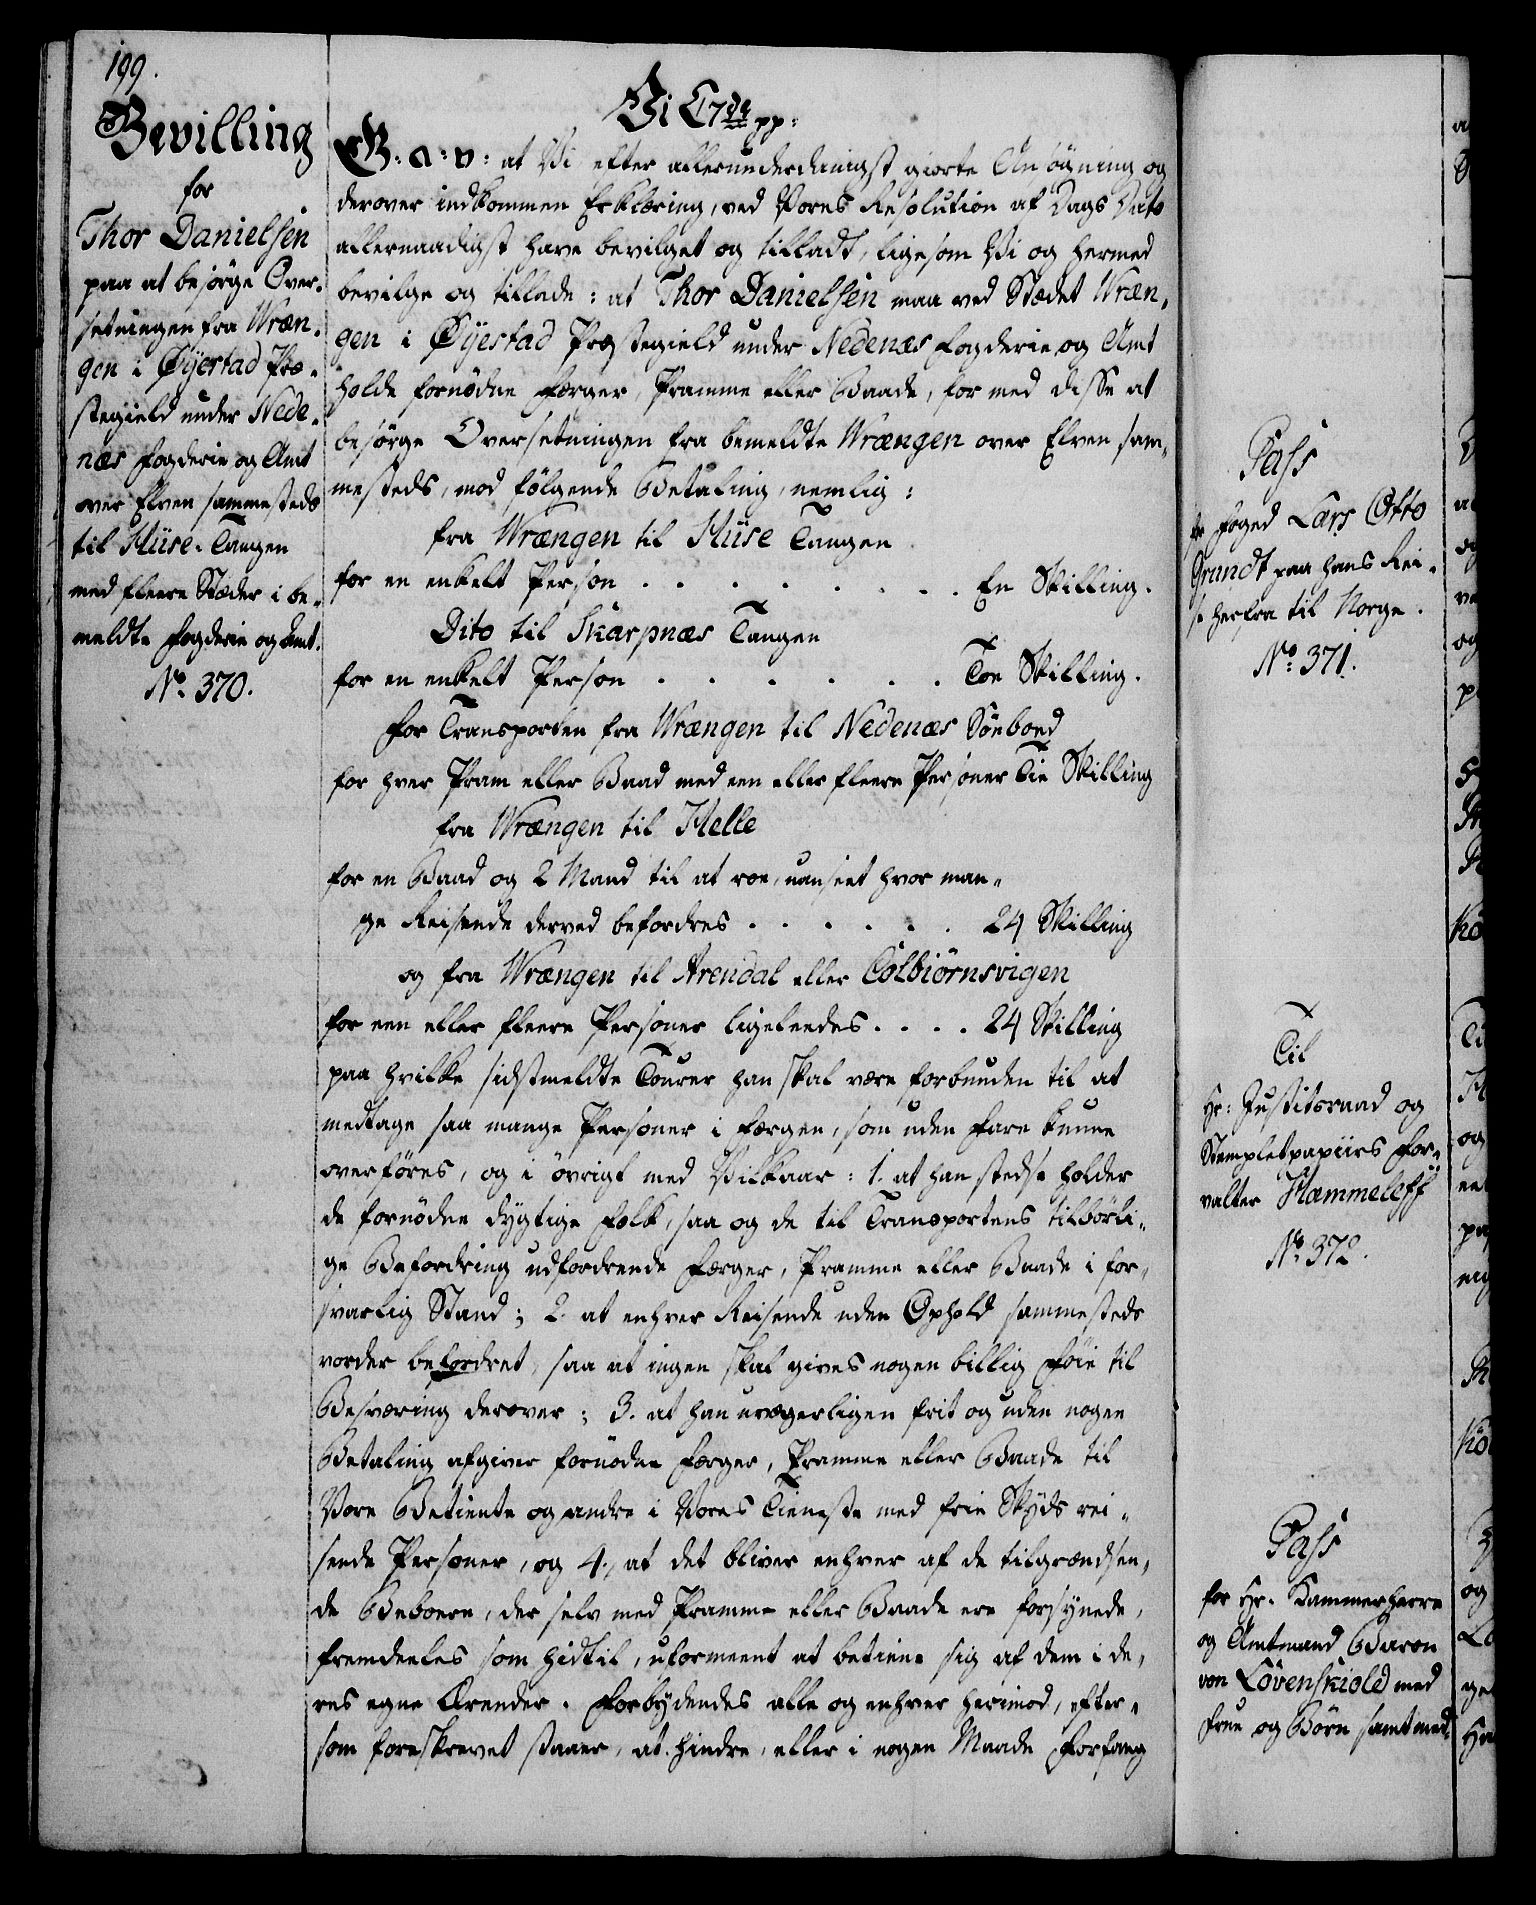 199.
Bevilling
for
Thor Danielsen
paa at besörge Over-
setningen fra Wræn-
gen i Øyestad Præ-
stegield under Nede-
næs Fogderie og Amt
over Elven sammesteds
til Hüse-Tangen
med fleere Stæder i be-
meldte Fogderie og Amt.
No. 370.
Vi C7de pp:
G: a: v: at Vi efter allerunderdanigst giorte Ansögning og
derover indkommen Erklæring, ved Vores Resolution af Dags Dato
allernaadigst have bevilget og tilladt, ligesom Vi og hermed
bevilge og tillade: at Thor Danielsen maa ved Stædet Wræn-
gen i Øÿestad Præstegield under Nedenæs Fogderie og Amt
holde fornödne Færger, Pramme eller Baade, for med disse at
besörge Oversetningen fra bemeldte Wrængen over Elven sam-
mesteds, mod fölgende Betaling, nemlig:
fra Wrængen til Hüse Tangen
for en enkelt Person . . . . . . . . En Skilling.
Dito til Skarpnæs Tangen
for en enkelt Person . . . . . . . Toe Skilling.
For Transporten fra Wrængen til Nedenæs Söeboed
for hver Pram eller Baad med een eller fleere Personer Tie Skilling
fra Wrængen til Helle
for en Baad og 2 Mand til at roe, uanseet hvor man-
ge Reisende derved befordres . . . . . . 24 Skilling
og fra Wrængen til Arendal eller Colbiörnsvigen
for een eller fleere Personer ligeleedes . . . . 24 Skilling
paa hvilke sidstmeldte Tourer han skal være forbunden til at
medtage saa mange Personer i Færgen, som uden Fare kunne
overföres, og i övrigt med Vilkaar: 1. at han stedse holder
de fornödne dygtige Folk, saa og de til Transportens tilbörli-
ge Befordring udfordrende Færger, Pramme eller Baade i for-
svarlig Stand; 2. at enhver Reisende uden Ophold sammesteds
vorder befordret, saa at ingen skal gives nogen billig Föie til
Besværing derover; 3. at han uvægerligen frit og uden nogen
Betaling afgiver fornödne Færger, Pramme eller Baade til
Vore Betiente og andre i Vores Tieneste med frie Skyds rei-
sende Personer, og 4., at det bliver enhver af de tilgrændsen-
de Beboere, der selv med Pramme eller Baade ere forsynede,
fremdeeles som hidtil, uformeent at betiene sig af dem i de-
res egne Ærender. Forbydendes alle og enhver herimod, efter-
som foreskrevet staaer, at hindre, eller i nogen Maade Forfang
Pass
for Foged Lars Otto
Grundt paa hans Rei-
se herfra til Norge.
No. 371.
Til
Hr: Justitsraad og
Stempletpapiirs For-
valter Hammeleff
No. 372.
Pass
for Hr. Kammerherre
og Amtmand Baron
von Lövenskiold med
Frue og Börn samt med